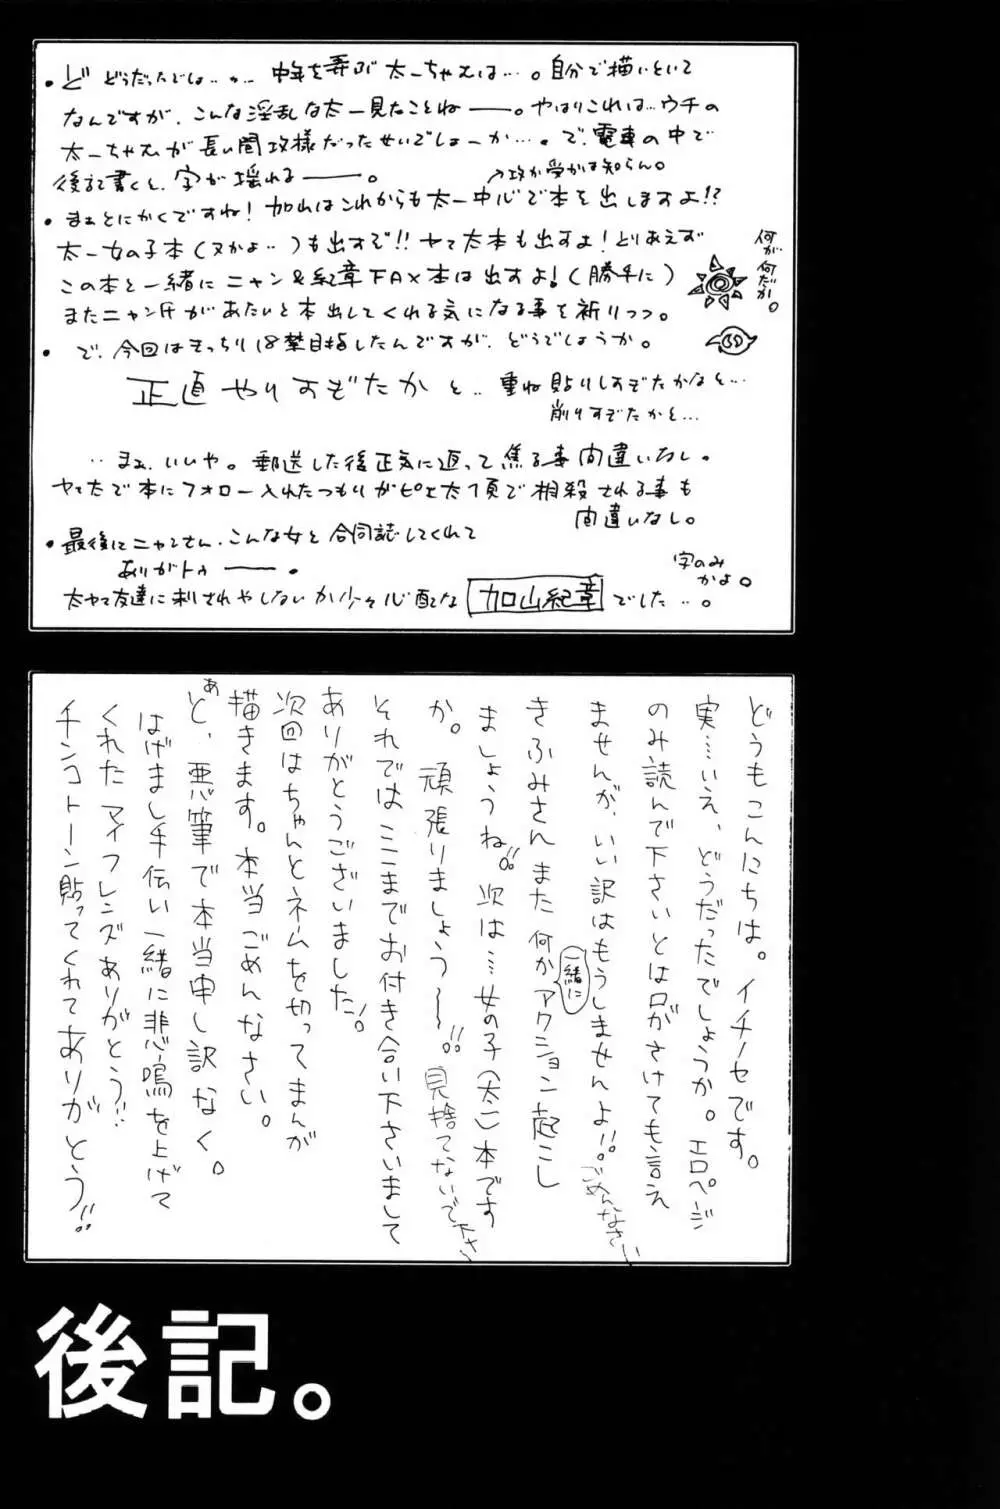 ・ど どうだったでしょーか… 中年を弄ぶ太一ちゃんは…。自分で描いといて
なんですが、こんな淫乱な太一見たことねーー。やはりこれは…ウチの
太一ちゃんが長い間攻様だったせいでしょーか…。で、電車の中で
後記書くと、字が揺れるーー。
↗攻か受かは知らん。
・まぁとにかくですね!加山はこれからも太一中心で本を出しますよ!?
太一女の子本(ヌかよ‥)も出すぞ!!ヤマ太本も出すよ!とりあえず
この本と一緒にニャン&紀章FAX本は出すよ!(勝手に)
またニャン氏があたいと本出してくれる気になる事を祈りつつ。
何が何だか。
・で、今回はきっちり18禁目指したんですが、どうでしょうか。
正直やりすぎたかと‥重ね貼りしすぎたかなと…
削りすぎたかと…
‥まぁ、いいや。郵送した後正気に返って焦る事間違いなし。
ヤマ太で本にフォロー入れたつもりがピエ太1頁で相殺される事も
間違いなし。
・最後にニャンさん、こんな女と合同誌してくれて
ありがトゥーー。
字のみかよ。
太ヤマ友達に刺されやしないか少々心配な 加山紀章 でした‥。
どうもこんにちは。イチノセです。
実…いえ、どうだったでしょうか。エロページ
のみ読んで下さいとは口がさけても言え
ませんが、いい訳はもうしませんよ!!。ごめんなさい
きふみさんまた何か一緒にアクション起こし
ましょうね!!。次は…女の子(太一)本です
か。頑張りましょう〜〜!!。見捨てないで下さい
それではここまでお付き合い下さいまして
ありがとうございました!。
次回はちゃんとネームを切ってまんが
描きます。本当ごめんなさい。
あと、悪筆で本当申し訳なく。
はげまし手伝い一緒に悲鳴を上げて
くれたマイフレンズありがとう!!
チンコトーン貼ってくれてありがとう!!
後記。